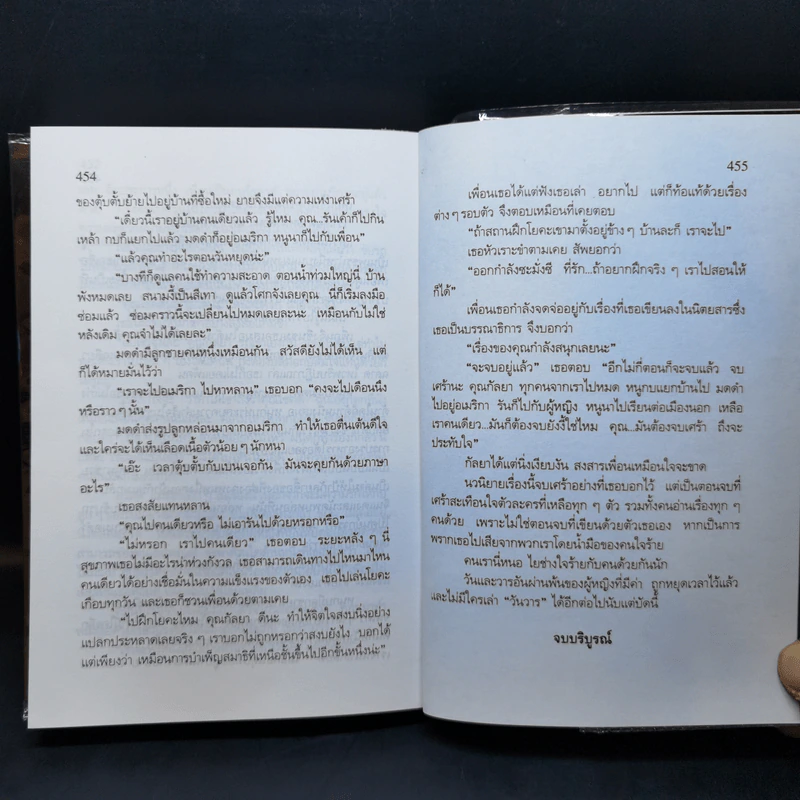 454
ของตุ้บตั้บย้ายไปอยู่บ้านที่ซื้อใหม่ ยายจึงมีแต่ความเหงาเศร้า
“เดี๋ยวนี้เราอยู่บ้านคนเดียวแล้ว รู้ไหม คุณ...รันเค้าก็ไปกิน
เหล้า กบก็แยกไปแล้ว มดดำก็อยู่อเมริกา หนูนาก็ไปกับเพื่อน”
“แล้วคุณทำอะไรตอนวันหยุดน่ะ”
“บางทีก็ดูแลคนใช้ทำความสะอาด ตอนน้ำท่วมใหญ่นี่ บ้าน
พังหมดเลย สนามงี้เป็นสีเทา ดูแล้วโศกจังเลยคุณ นี่ก็เริ่มลงมือ
ซ่อมแล้ว ซ่อมคราวนี้จะเปลี่ยนไปหมดเลยละนะ เหมือนกับไม่ใช่
หลังเดิม คุณจำไม่ได้เลยละ”
มดดำมีลูกชายคนหนึ่งเหมือนกัน สวัสดียังไม่ได้เห็น แต่
ก็ได้หมายมั่นไว้ว่า
“เราจะไปอเมริกา ไปหาหลาน” เธอบอก “คงจะไปเดือนนึง
หรือราว ๆ นั้น”
มดดำส่งรูปลูกหล่อนมาจากอเมริกา ทำให้เธอตื่นเต้นดีใจ
และใคร่จะได้เห็นเลือดเนื้อตัวน้อย ๆ นักหนา
“เอ๊ะ เวลาตุ้บตั้บกับเบนเจอกัน มันจะคุยกันด้วยภาษา
อะไร”
เธอสงสัยแทนหลาน
“คุณไปคนเดียวหรือ ไม่เอารันไปด้วยหรอกหรือ”
“ไม่หรอก เราไปคนเดียว” เธอตอบ ระยะหลัง ๆ นี้
สุขภาพเธอไม่มีอะไรน่าห่วงกังวล เธอสามารถเดินทางไปไหนมาไหน
คนเดียวได้อย่างเชื่อมั่นในความแข็งแรงของตัวเอง เธอไปเล่นโยคะ
เกือบทุกวัน และเธอก็ชวนเพื่อนด้วยตามเคย
“ไปฝึกโยคะไหม คุณกัลยา ดีนะ ทำให้จิตใจสงบนิ่งอย่าง
แปลกประหลาดเลยจริง ๆ เราบอกไม่ถูกหรอกว่าสงบยังไง บอกได้
แต่เพียงว่า เหมือนการบำเพ็ญสมาธิที่เหนือชั้นขึ้นไปอีกขั้นหนึ่งน่ะ”
455
เพื่อนเธอได้แต่ฟังเธอเล่า อยากไป แต่ก็ท้อแท้ด้วยเรื่อง
ต่าง ๆ รอบตัว จึงตอบเหมือนที่เคยตอบ
“ถ้าสถานฝึกโยคะเขามาตั้งอยู่ข้าง ๆ บ้านละก็ เราจะไป”
เธอหัวเราะขำตามเคย สัพยอกว่า
“ออกกำลังซะมั่งซี ที่รัก...ถ้าอยากฝึกจริง ๆ เราไปสอนให้
ก็ได้”
เพื่อนเธอกำลังจดจ่ออยู่กับเรื่องที่เธอเขียนลงในนิตยสารซึ่ง
เธอเป็นบรรณาธิการ จึงบอกว่า
“เรื่องของคุณกำลังสนุกเลยนะ”
“จะจบอยู่แล้ว” เธอตอบ “อีกไม่กี่ตอนก็จะจบแล้ว จบ
เศร้านะ คุณกัลยา ทุกคนจากเราไปหมด หนูกบแยกบ้านไป มดดำ
ไปอยู่อเมริกา รันก็ไปกับผู้หญิง หนูนาไปเรียนต่อเมืองนอก เหลือ
เราคนเดียว...มันก็ต้องจบยังงี้ใช่ไหม คุณ...มันต้องจบเศร้า ถึงจะ
ประทับใจ”
กัลยาได้แต่นิ่งเงียบงัน สงสารเพื่อนเหมือนใจจะขาด
นวนิยายเรื่องนี้จบเศร้าอย่างที่เธอบอกไว้ แต่เป็นตอนจบที่
เศร้าสะเทือนใจตัวละครที่เหลือทุก ๆ ตัว รวมทั้งคนอ่านเรื่องทุก ๆ
คนด้วย เพราะไม่ใช่ตอนจบที่เขียนด้วยตัวเธอเอง หากเป็นการ
พรากเธอไปเสียจากพวกเราโดยน้ำมือของคนใจร้าย
คนเรานี่หนอ ไยช่างใจร้ายกับคนด้วยกันนัก
วันและวารอันผ่านพ้นของผู้หญิงที่มีค่า ถูกหยุดเวลาไว้แล้ว
และไม่มีใครเล่า “วันวาร” ได้อีกต่อไปนับแต่บัดนี้
จบบริบูรณ์